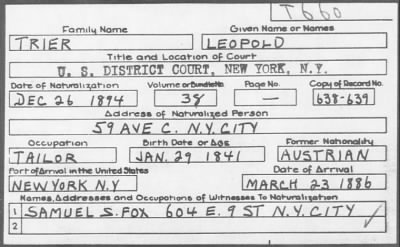 T660
Family Name Given Name or Names
TRIER LEOPOLD
Title and Location of Court
U. S. DISTRICT COURT, NEW YORK, N.Y.
Date of Naturalization Volume or Bundle No. Page No. Copy of Record No.
DEC 26 1894 38 — 638-639
Address of Naturalized Person
59 AVE C. N.Y. CITY
Occupation Birth Date or Age Former Nationality
TAILOR JAN. 29 1841 AUSTRIAN
Port of Arrival in the United States Date of Arrival
NEW YORK N.Y MARCH 23 1886
Names, Addresses and Occupations of Witnesses To Naturalization
1 SAMUEL S. FOX 604 E. 9 ST N.Y. CITY
2